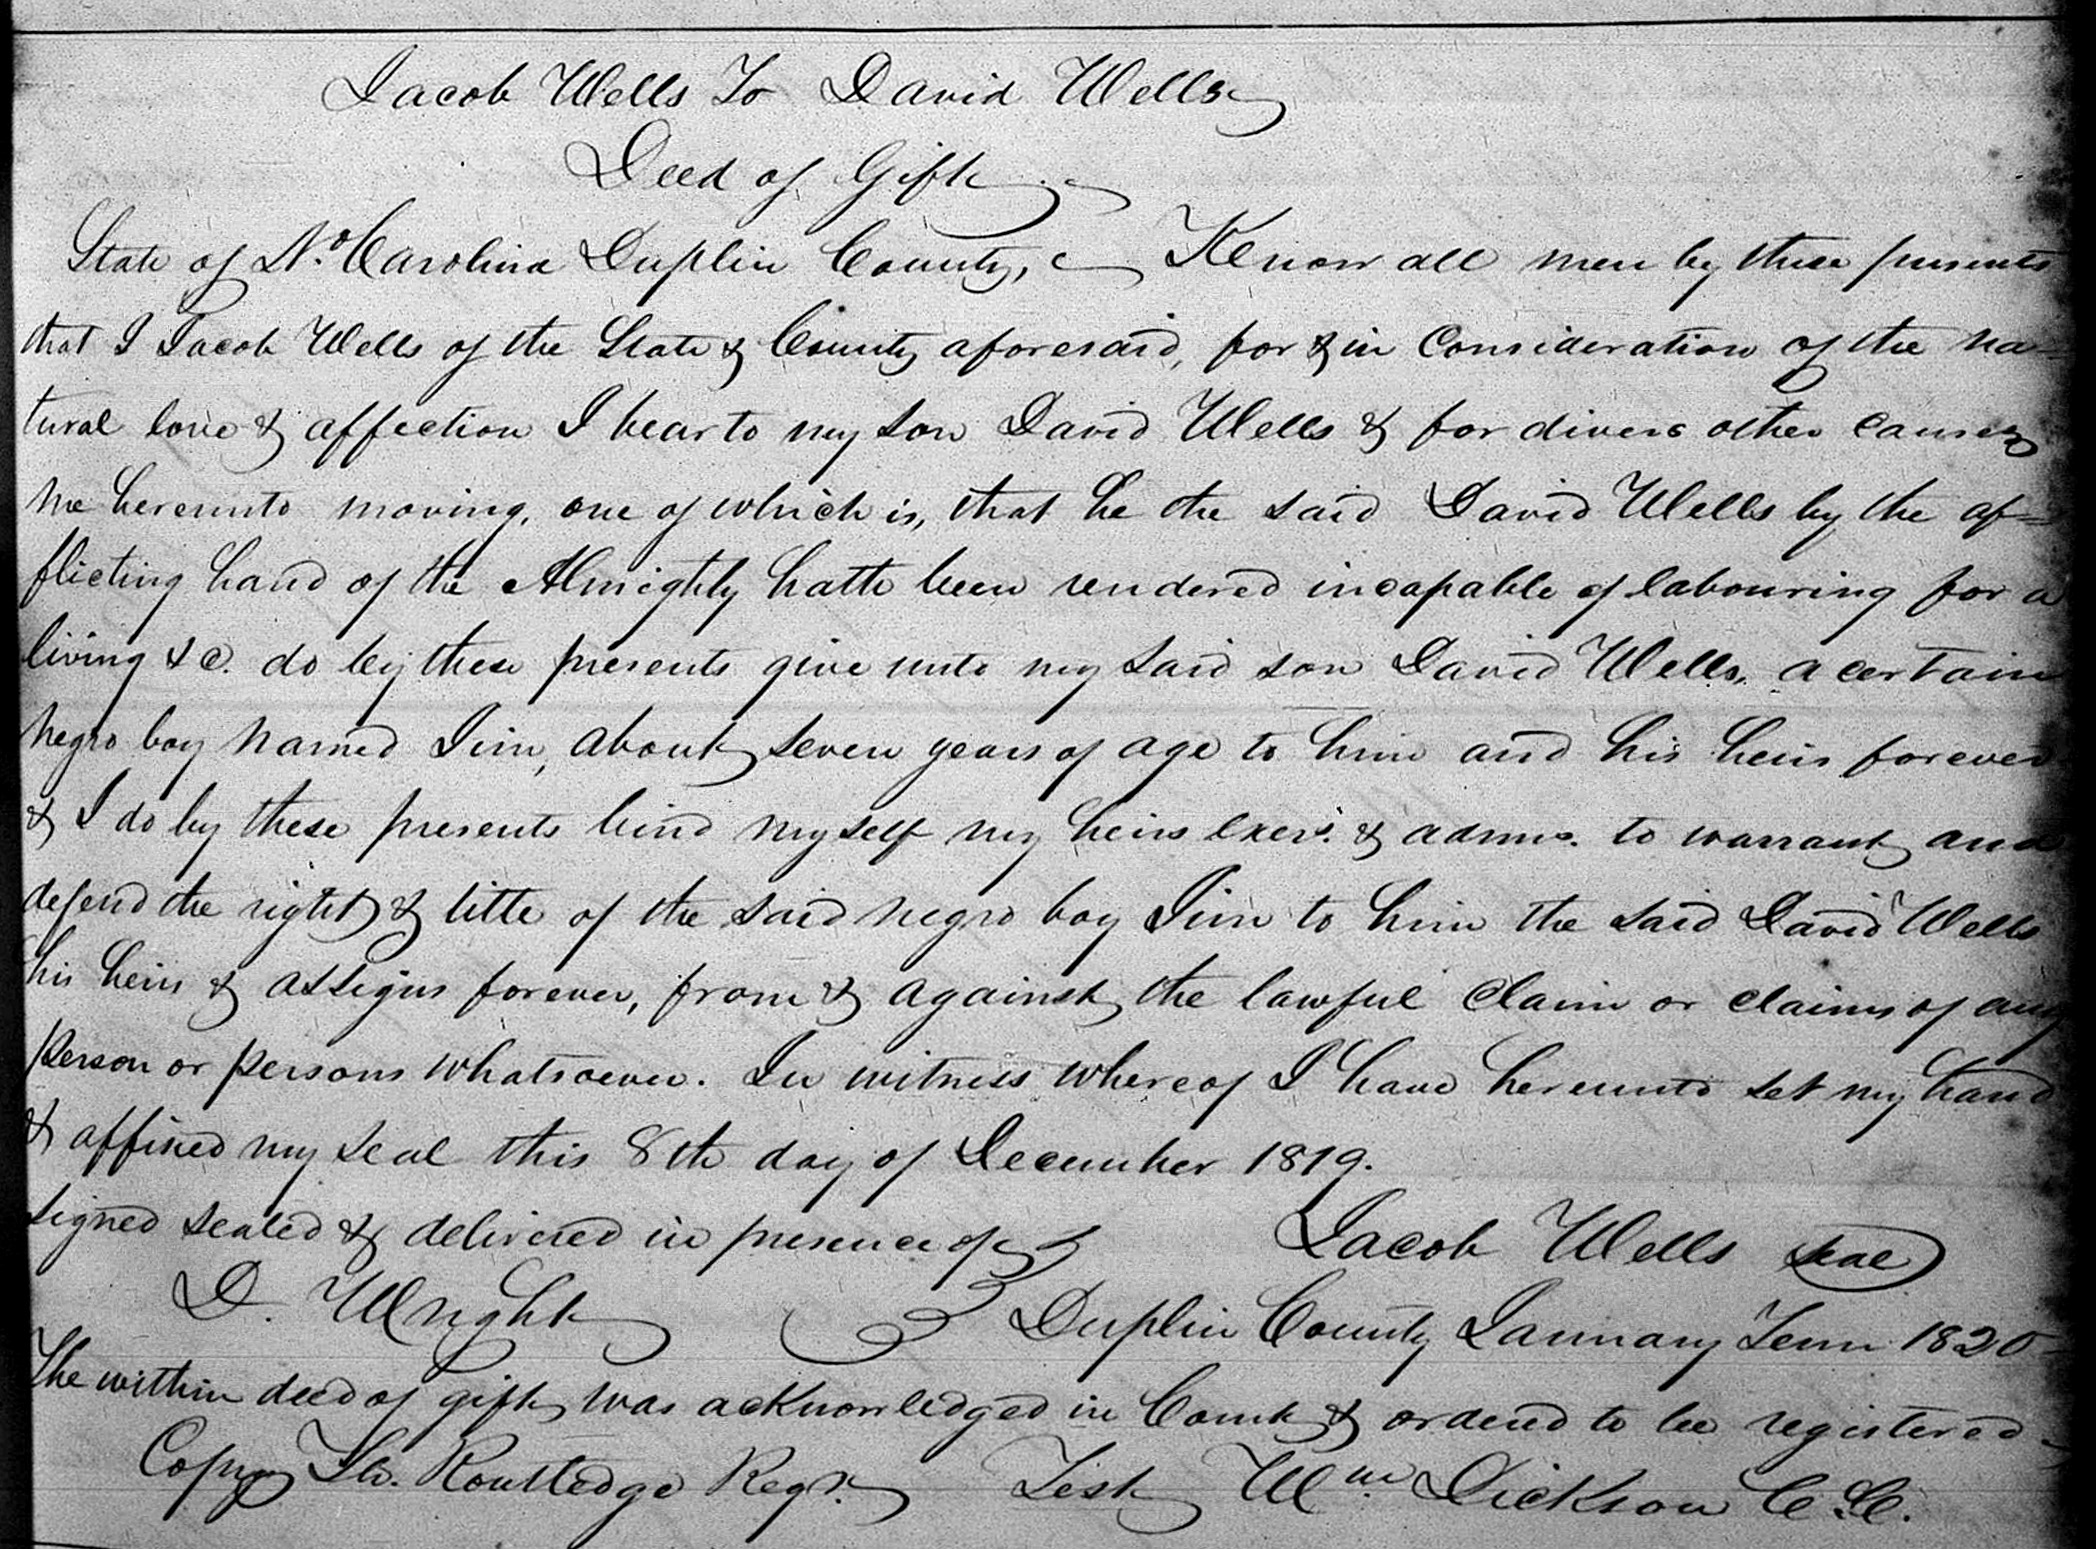 Jacob Wells To David Wells
Deed of Gift
State of No. Carolina Duplin County, Know all men by these presents
that I Jacob Wells of the State & County aforesaid, for & in Consideration of the na=
tural love & affection I bear to my son David Wells & for divers other causes
me hereunto moving, one of which is, that he the said David Wells by the af=
flicting hand of the Almighty hath been rendered incapable of labouring for a
living &c. do by these presents give unto my said son David Wells, a certain
negro boy named Jim, about seven years of age to him and his heirs forever
& I do by these presents bind myself my heirs exers. & admrs. to warrant and
defend the right & title of the said negro boy Jim to him the said David Wells
his heirs & assigns forever, from & against the lawful claim or claims of any
person or persons whatsoever. In witness whereof I have hereunto set my hand
& affixed my seal this 8th day of December 1819.
signed sealed & delivered in presence of Jacob Wells seal
D. Wright Duplin County January Term 1820
The within deed of gift was acknowledged in Court & ordered to be registered
Copy Th. Routledge Regr. Test Wm. Dickson C.C.